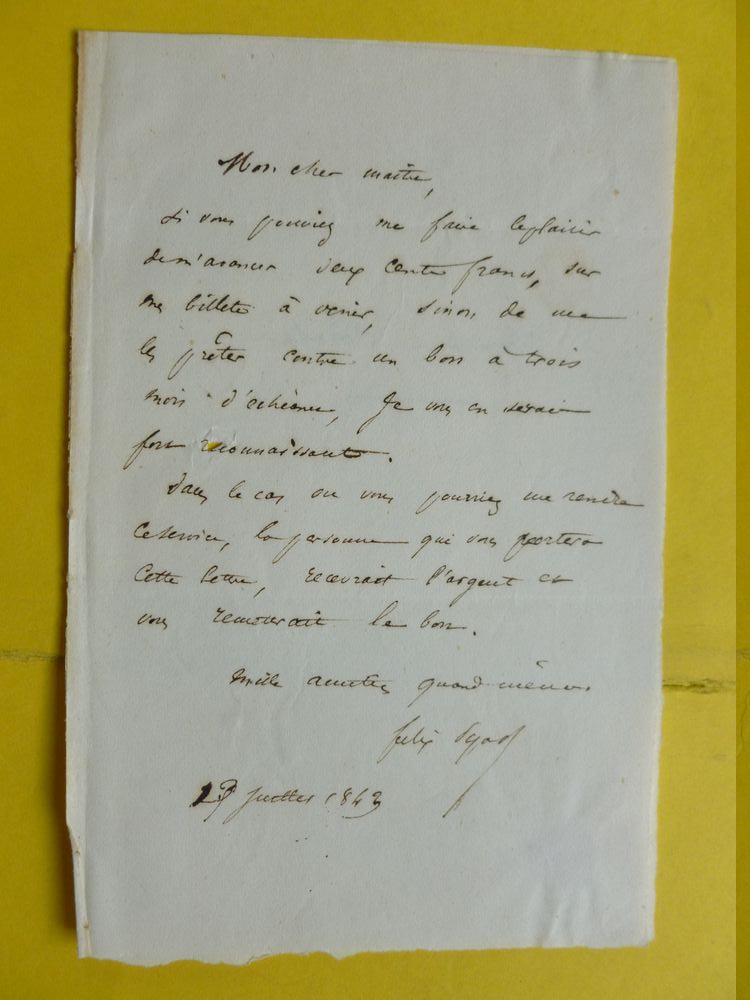 Mon cher maître,
si vous pouviez me faire le plaisir
de m'avancer deux cents francs, sur
mes billets à venir, sinon de me
les prêter contre un bon à trois
mois d'échéance, Je vous en serais
fort reconnaissant.
Dans le cas ou vous pourriez me rendre
ce service, la personne qui vous portera
cette lettre, recevrait l'argent et
vous remettrait le bon.
Mille amitiés quand même.
felix Pyat
juillet 1843